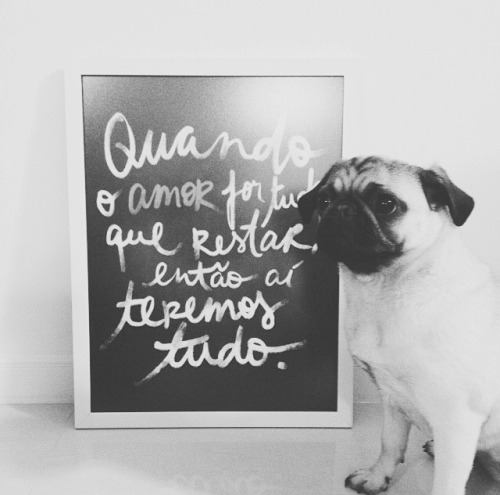 Quando
o amor for tud
que restar,
então aí
teremos
tudo.